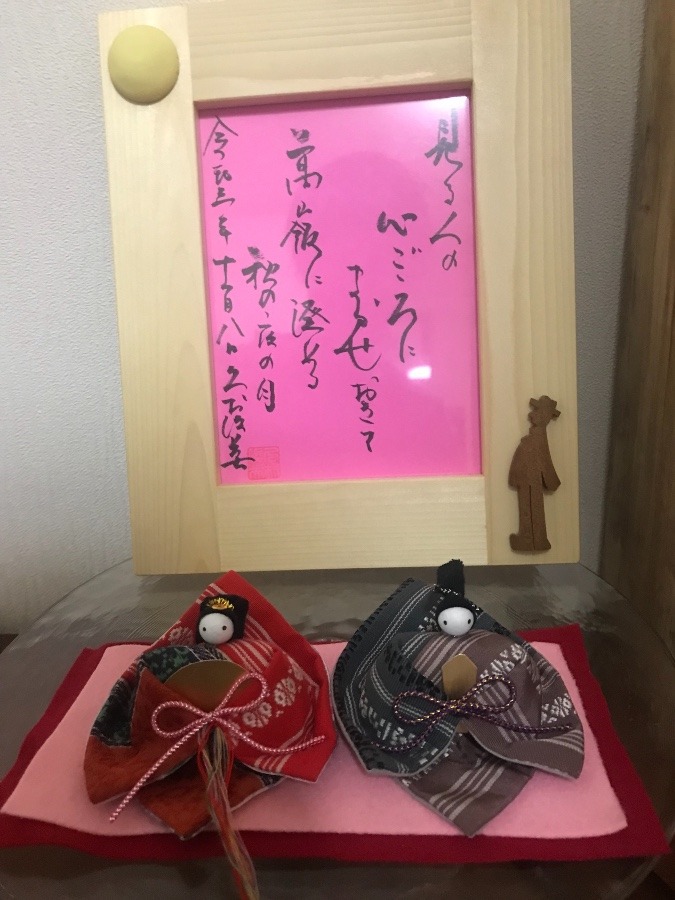 見る人の
心ごころに
まかせおきて
高嶺に澄める
秋の夜の月
令和三年十一月八日